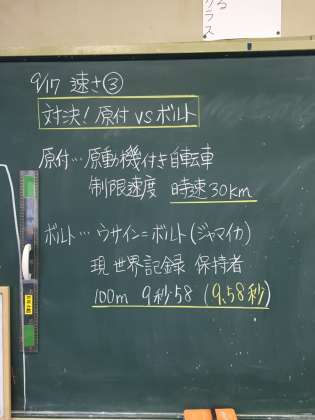 る
クラス
9/17 速さ③
対決！原付 vs ボルト
原付…原動機付き自転車
制限速度 時速30km
ボルト…ウサイン＝ボルト(ジャマイカ)
現世界記録 保持者
100m 9秒58 (9.58秒)